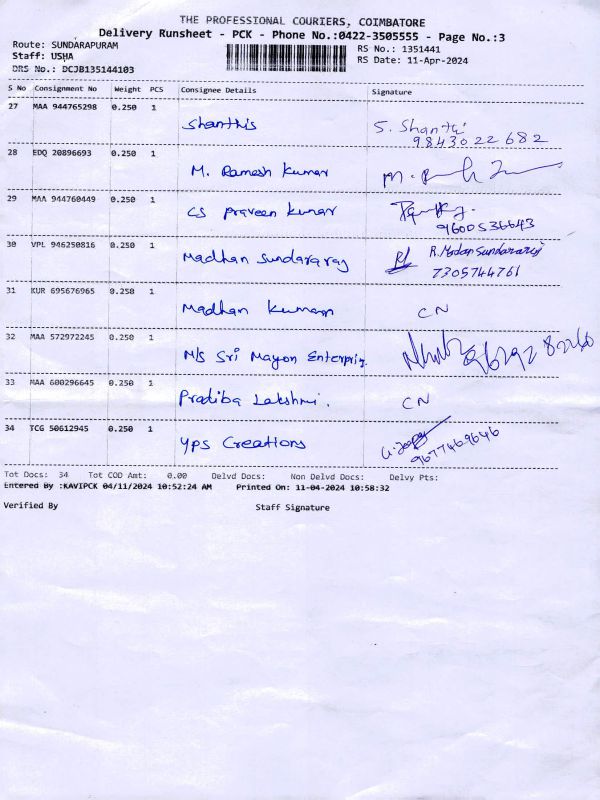 THE PROFESSIONAL COURIERS, COIMBATORE
Delivery Runsheet - PCK - Phone No.:0422-3505555 - Page No.:3
Route: SUNDARAPURAM
Staff: USHA
DRS No.: DCJB135144103
RS No.: 1351441
RS Date: 11-Apr-2024
S No Consignment No Weight PCS Consignee Details Signature
27 MAA 944765298 0.250 1 Shanthis S. Shanthi
9843022682
28 EDQ 20896693 0.250 1 M. Ramesh Kumar
29 MAA 944760449 0.250 1 CS Praveen Kumar
9600536643
30 VPL 946250816 0.250 1 Madhan Sundararaj R. Madan Sundararaj
7305744761
31 KUR 695676965 0.250 1 Madhan Kumar CN
32 MAA 572972245 0.250 1 M/s Sri Mayon Enterpriz.
33 MAA 600296645 0.250 1 Pradiba Lakshmi. CN
34 TCG 50612945 0.250 1 YPS Creations
9677469646
Tot Docs: 34 Tot COD Amt: 0.00 Delvd Docs: Non Delvd Docs: Delvy Pts:
Entered By :KAVIPCK 04/11/2024 10:52:24 AM Printed On: 11-04-2024 10:58:32
Verified By Staff Signature